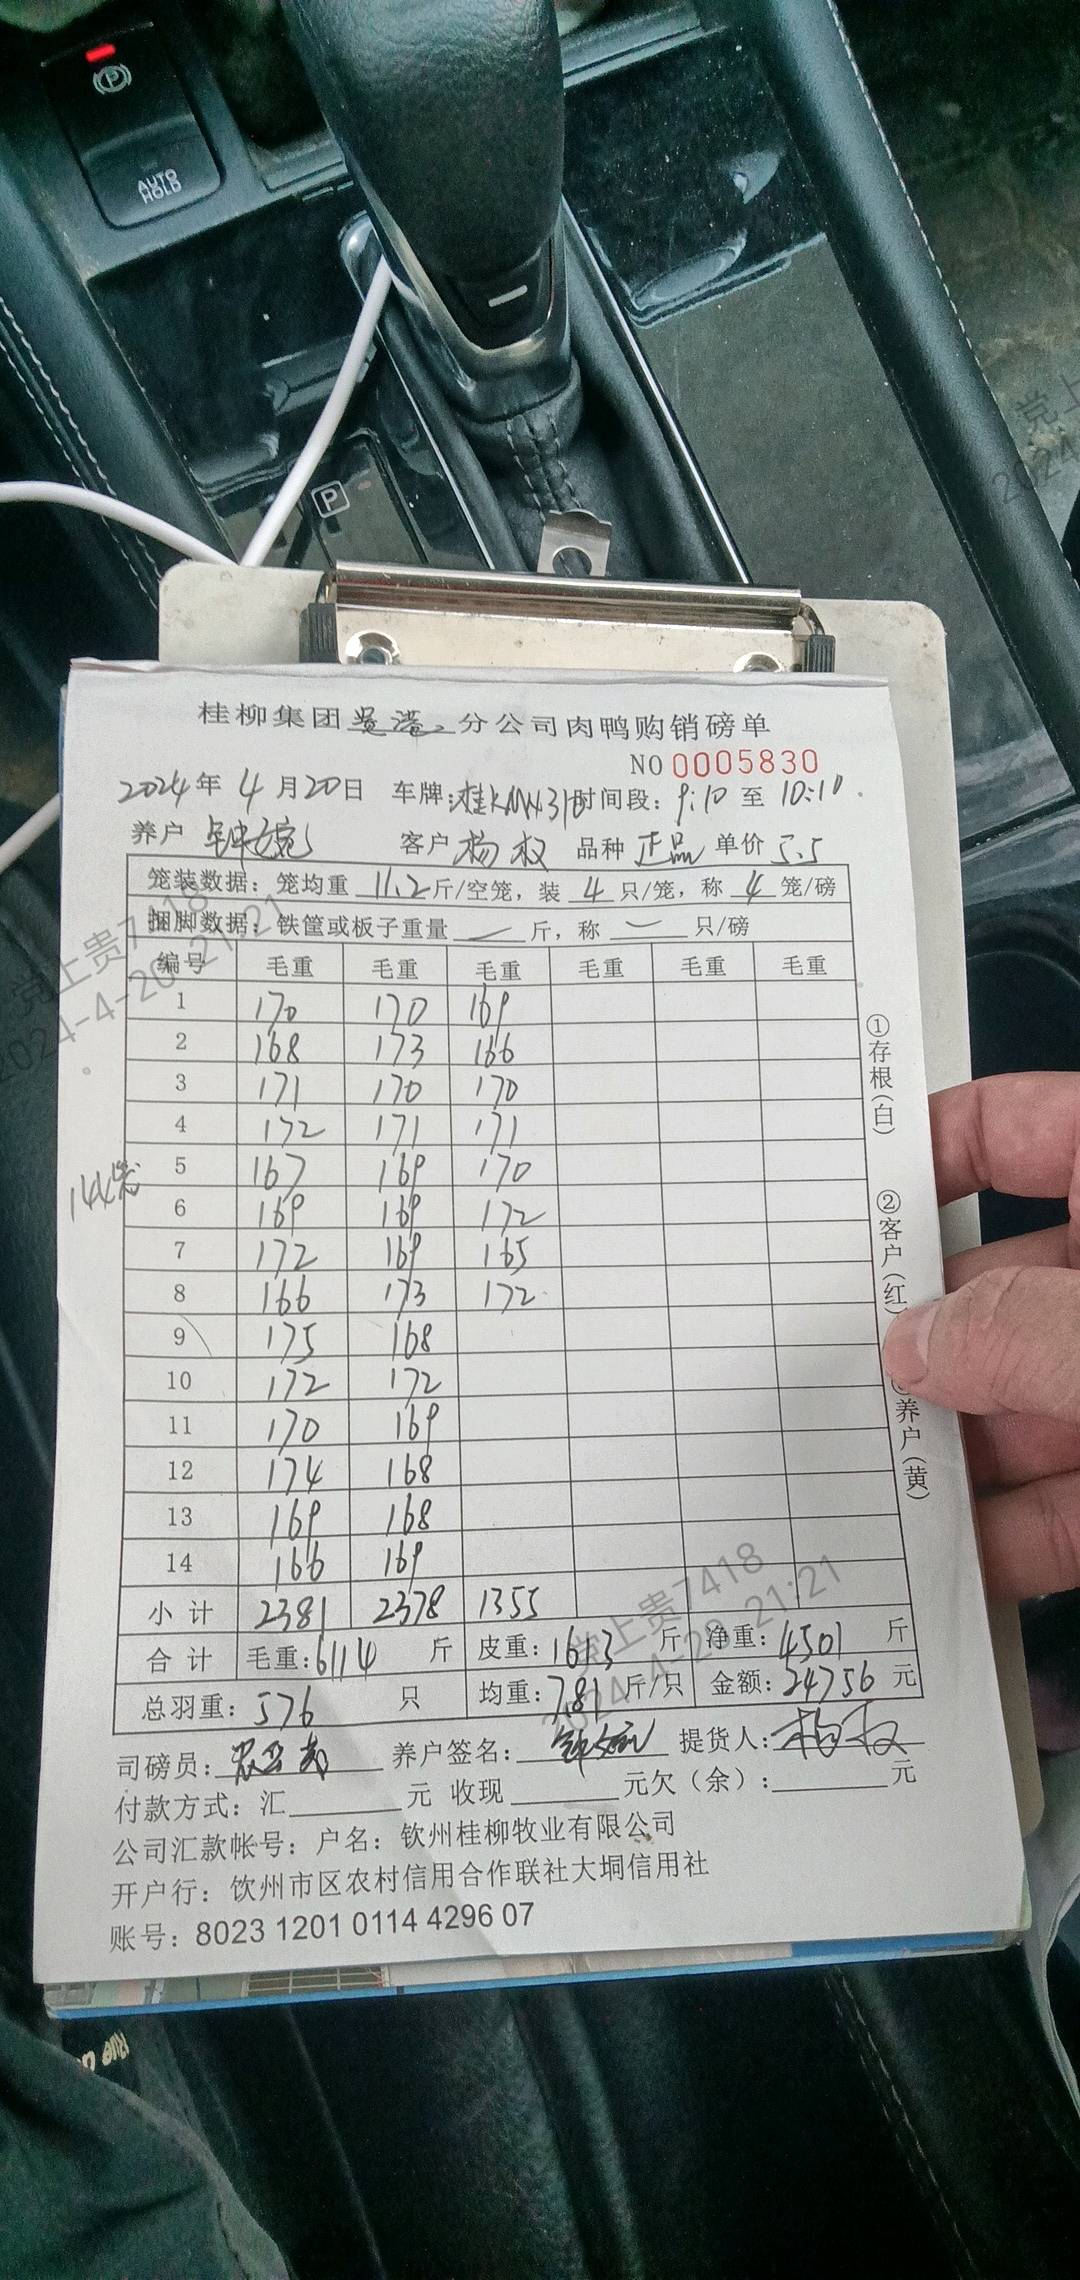 AUTO
HOLD
P
桂柳集团贵港分公司肉鸭购销磅单
NO 0005830
2024年 4月20日 车牌: 时间段: 9:10 至 10:10
养户 钟 客户 杨权 品种 正品 单价 5.5
笼装数据: 笼均重 11.2 斤/空笼, 装 4 只/笼, 称 4 笼/磅
捆脚数据: 铁筐或板子重量 斤, 称 只/磅
编号 毛重 毛重 毛重 毛重 毛重 毛重
1 170 170 169
2 168 173 166
3 171 170 170
4 172 171 171
144笼
5 167 169 170
6 169 169 172
7 172 169 165
8 166 173 172
9 175 168
10 172 172
11 170 169
12 174 168
13 169 168
14 166 169
小计 2381 2378 1355
合计 毛重: 6114 斤 皮重: 1613 斤 净重: 4501 斤
总羽重: 576 只 均重: 7.81 斤/只 金额: 24756 元
司磅员: 养户签名: 提货人: 杨权
付款方式: 汇 元 收现 元欠(余): 元
公司汇款帐号: 户名: 钦州桂柳牧业有限公司
开户行: 钦州市区农村信用合作联社大垌信用社
账号: 8023 1201 0114 4296 07
①存根(白) ②客户(红) ③养户(黄)
党上贵7418
2024-4-20 21:21
党上贵7418
2024-4-20 21:21
党上
2024